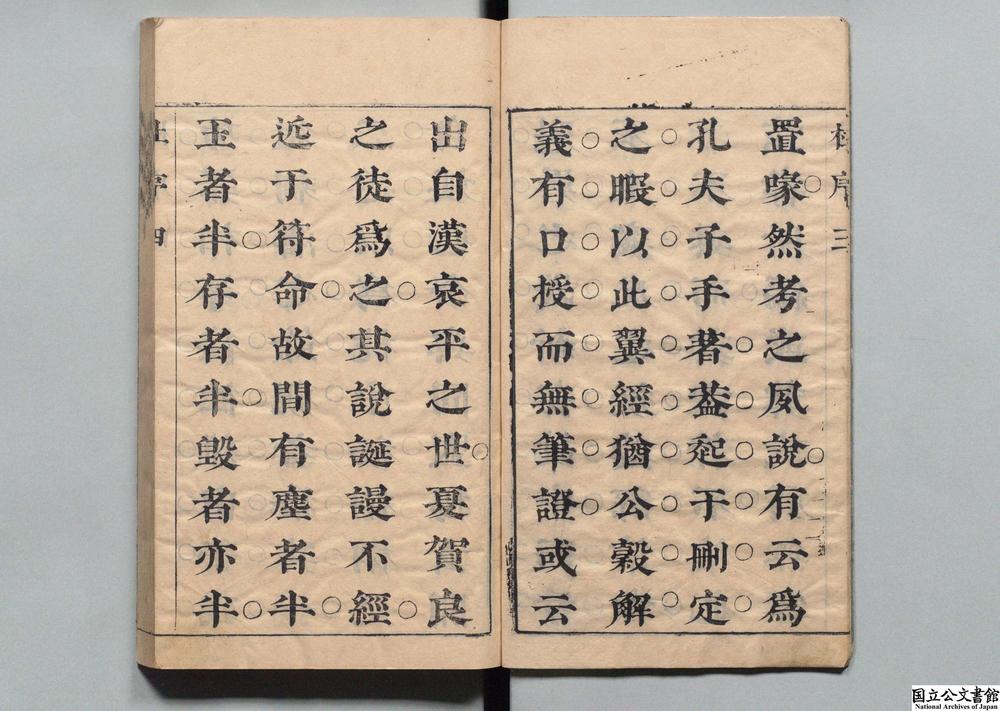 杜序三
置喙然考之夙說有云爲
孔夫子手著葢起于刪定
之暇以此翼經猶公穀解
義有口授而無筆證或云
出自漢哀平之世夏賀良
之徒爲之其說誕謾不經
近于符命故間有塵者半
玉者半存者半毀者亦半
杜序四
国立公文書館
National Archives of Japan